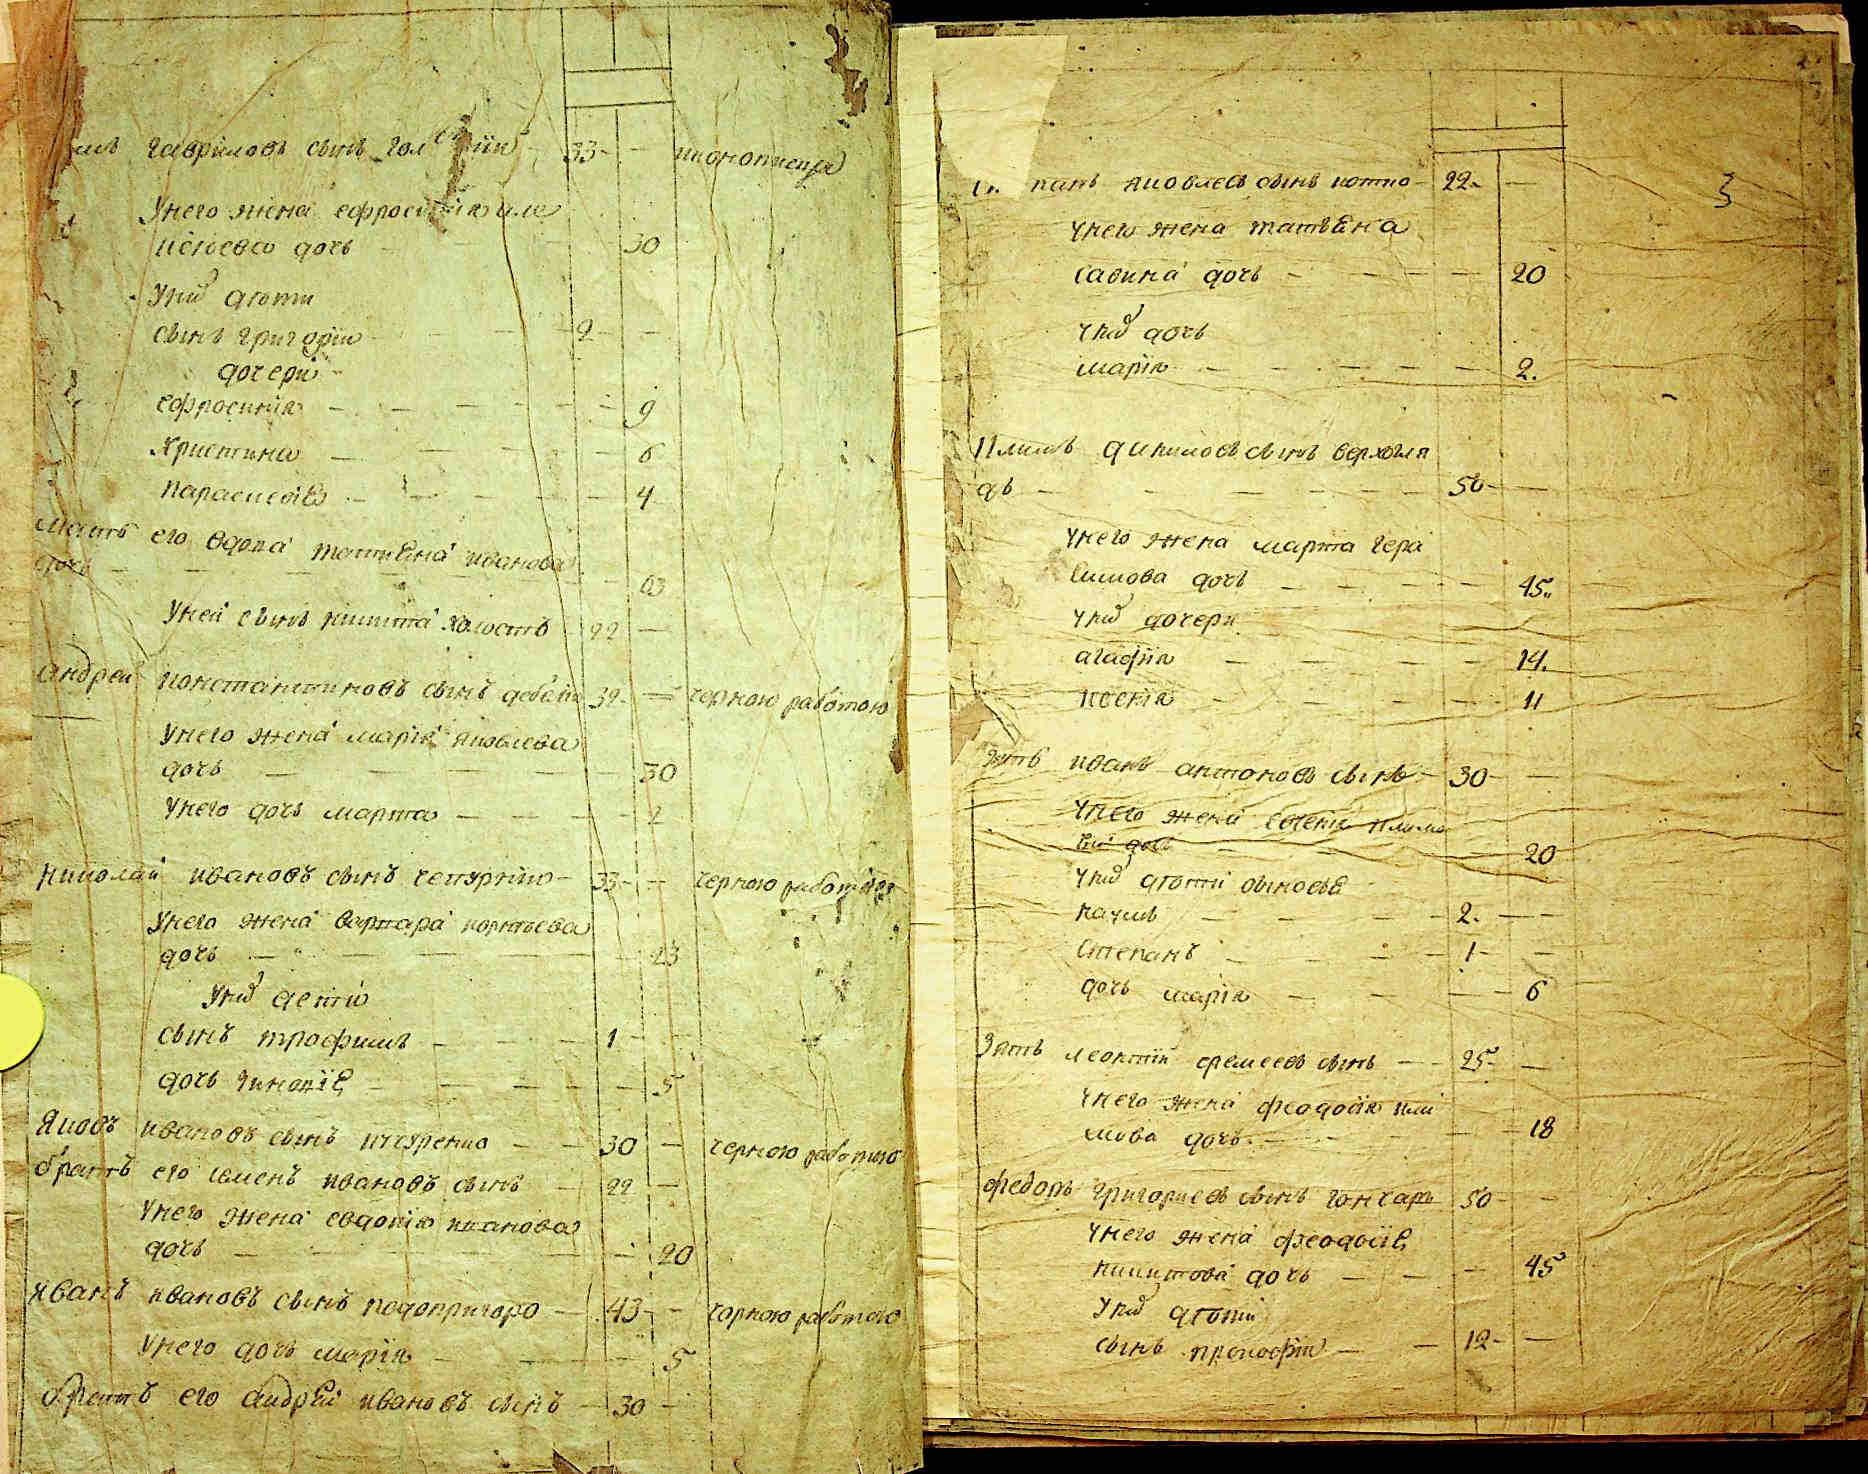 гавриловъ сынъ 33 иконописця
У него жена ефросинія але
ксѣева дочь 30
У них дѣти
сынъ григорій 9
дочери
ефросинія 9
Христина 6
параскевія 4
Мать его вдова татияна иванова
дочь 63
У ней сынъ никита холостъ 22
андрей константиновъ сынъ 39 черною работою
У него жена марія яковлева
дочь 30
У него дочь марта 2
Николай ивановъ сынъ чепурнiй 33 черною работою
У него жена варвара
дочь 23
У них дети
сынъ трофимъ 1
дочь зиновія 5
Яковъ ивановъ сынъ 30 черною работою
братъ его семенъ ивановъ сынъ 22
У него жена евдокія иванова
дочь 20
Иванъ ивановъ сынъ подопригоро 43 чорною работою
У него дочь марія 5
братъ его андрей ивановъ сынъ 30
3
яковлевъ сынъ 22
У него жена татияна
савина дочь 20
У них дочь
марія 2.
Климъ даниловъ сынъ верхогля
дъ 50
У него жена марта гера
симова дочь 45
У них дочери
агафія 14.
ксенія 11
Зять иванъ антоновъ сынъ 30
У него жена евгенія климо
ва дочь 20
У них дѣти сыновья
наумъ 2.
Степанъ 1
дочь марія 6
Зять леонтій еремеевъ сынъ 25
У него жена феодосія кли
мова дочь 18
федоръ григориевъ сынъ гончаръ 50
У него жена феодосія
никитова дочь 45
У них дѣти
сынъ прокофій 12